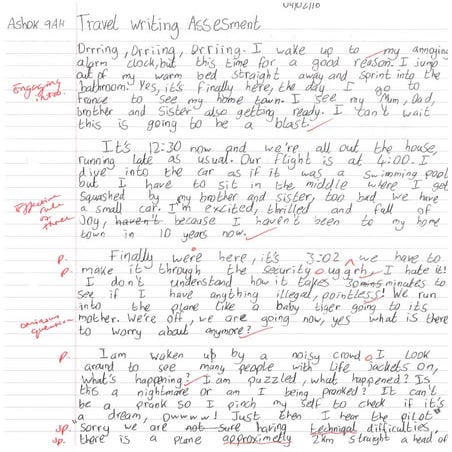 04/02/16
Ashok 9AH Travel Writing Assesment
Drrring, Drriing, Drriing. I wake up to my annoying
alarm clock, but this time for a good reason. I jump
out of my warm bed straight away and sprint into the
Engaging intro. bathroom. Yes, it's finally here, the day I go to
France to see my home town. I see my Mum, Dad,
brother and Sister also getting ready. I can't wait
this is going to be a blast.
It's 12:30 now and we're, all out the house,
running late as usual. Our flight is at 4:00. I
dive into the car as if it was a swimming pool
but I have to sit in the middle where I get
squashed by my brother and sister, too bad we have
Effective rule of three a small car. I'm excited, thrilled and full of
Joy, haven't because I haven't been to my home
town in 10 years now.
P. Finally were here, it's 3:02 ^ we have to
P. make it through the security o uggrh, I hate it!
I don't understand how it takes 30mins minutes to
see if I have anything illegal, pointless! We run
into the plane like a baby tiger going to its
question mother. We're off, we are going now, yes what is there
to worry about anymore?
P. I am waken up by a noisy crowd o I look
around to see many people with life Jackets on,
what's happening? I am puzzled, what happened? Is
this a nightmare or am I being pranked? It can't
be a prank so I pinch my self to check if it's
a dream, owwww! Just then I hear the pilot"
sp. "Sorry we are not sure having technigal difficulties,
sp. there is a plane approximetly 2km straight a head of